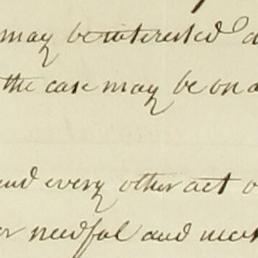 may be interested
the case may be on a
and every other act
or needful and